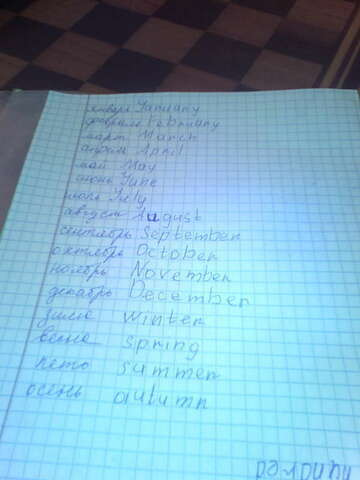 январь January
февраль February
март March
апрель April
май May
июнь June
июль July
август August
сентябрь September
октябрь October
ноябрь November
декабрь December
зима winter
весна spring
лето summer
осень autumn